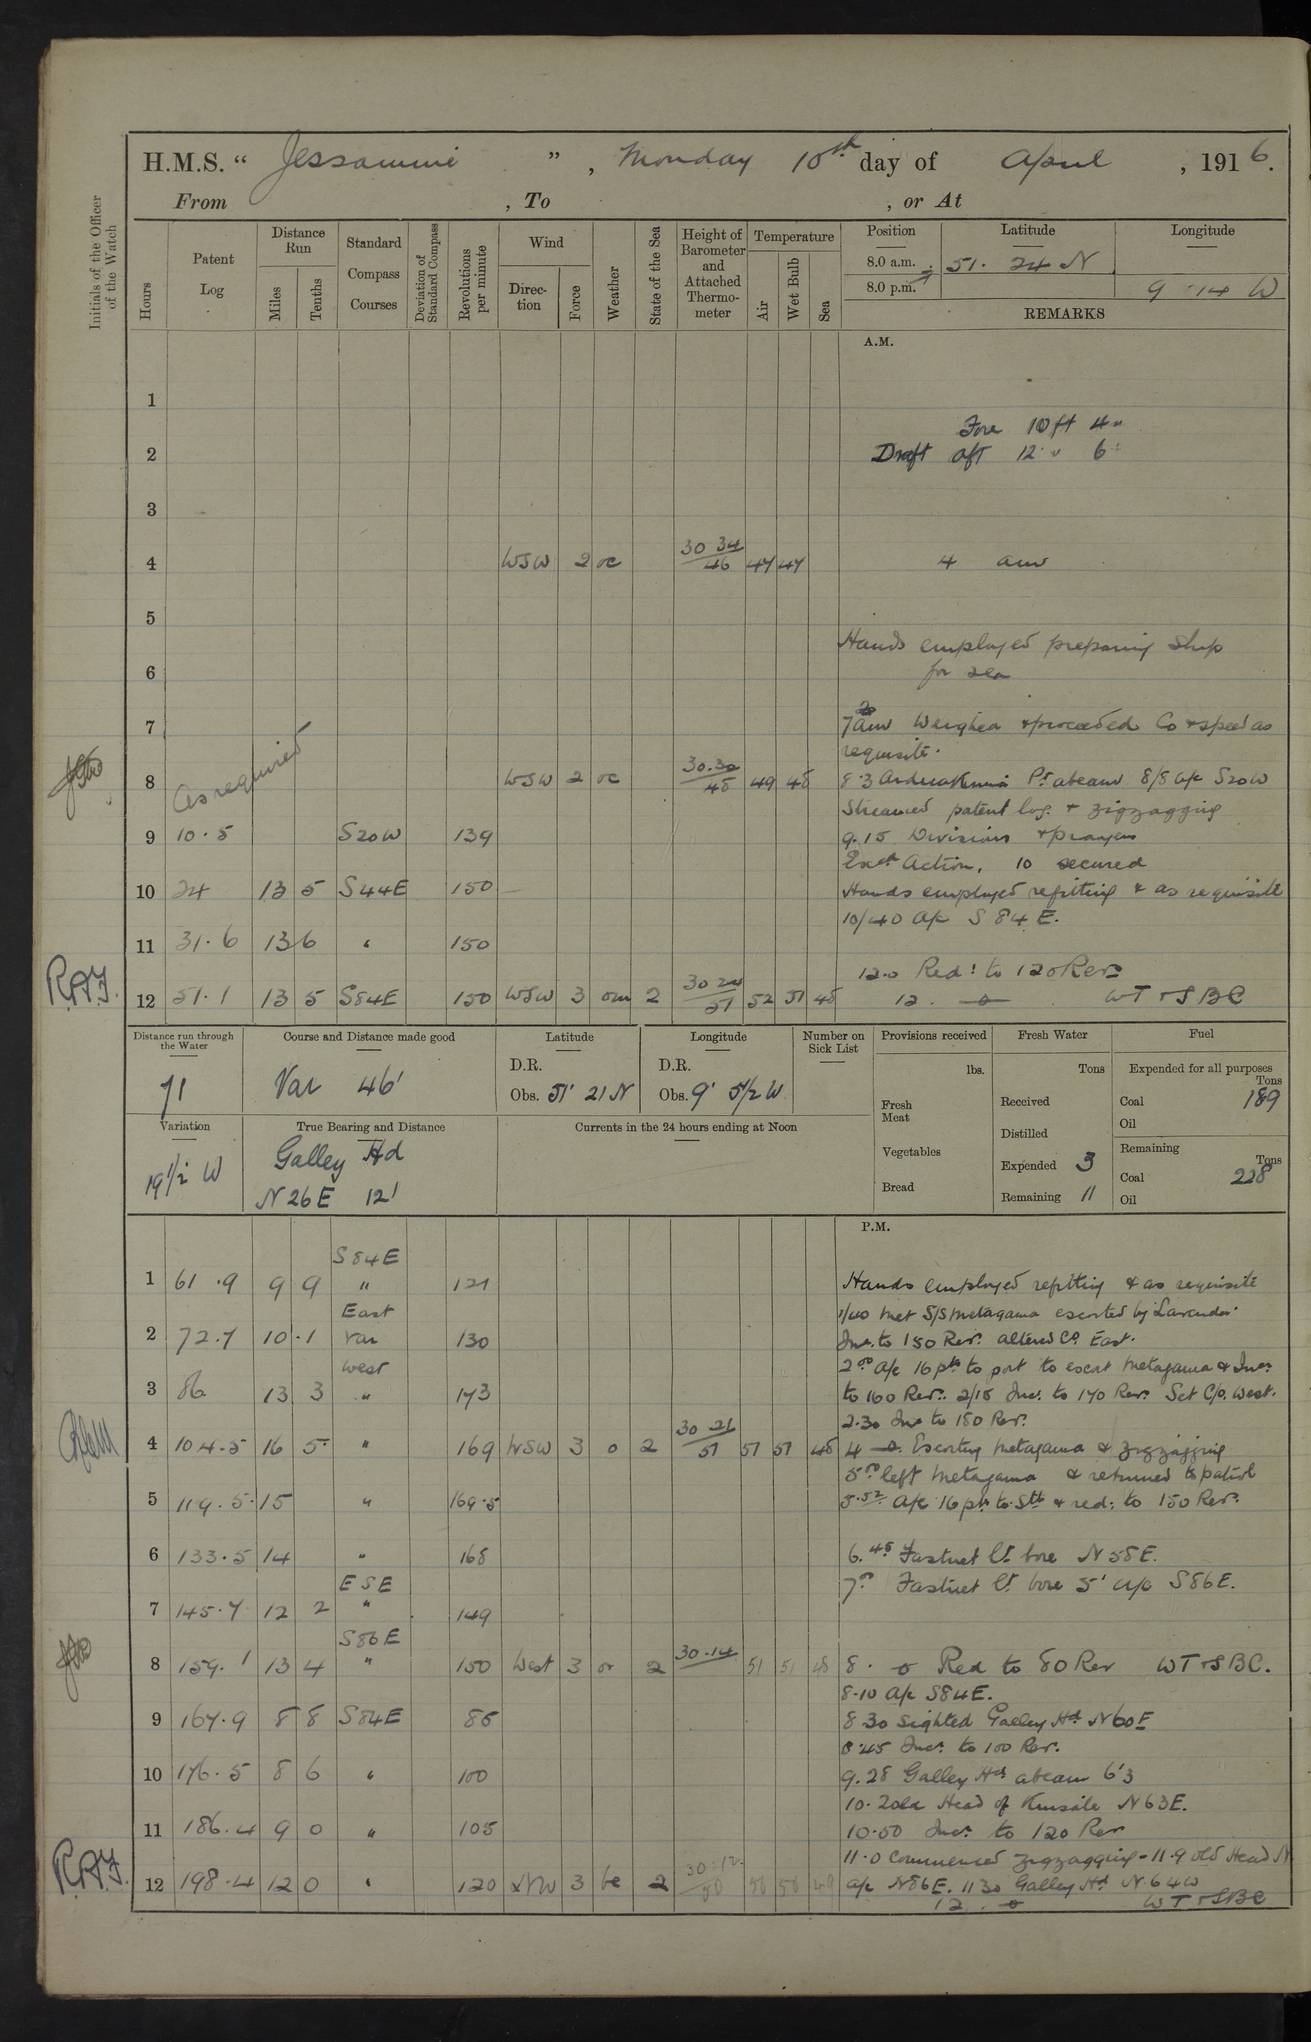 H.M.S. “ Jessamine ”, Monday 10th day of April, 1916.
From , To , or At
Initials of the Officer of the Watch
Hours
Patent Log
Distance Run
Miles
Tenths
Standard Compass Courses
Deviation of Standard Compass
Revolutions per minute
Wind
Direction
Force
Weather
State of the Sea
Height of Barometer and Attached Thermometer
Temperature
Air
Wet Bulb
Sea
Position Latitude Longitude
8.0 a.m. 51. 24 N
8.0 p.m. 9 14 W
REMARKS
A.M.
1
Fore 10 ft 4"
2 Draft aft 12 " 6"
3
4 WSW 2 oc 30 34 / 46 47 47 4 am
5
Hands employed preparing ship
6 for sea
7 7 am Weighed & proceeded Co & speed as
requisite.
8 As required WSW 2 oc 30.30 / 48 49 48 8.3 Pt abeam 8/8 a/c S20W
Streamed patent log. & zigzagging
9 10.5 S20W 139 9.15 Divisions & prayers
Exd Action. 10 secured
10 24 13 5 S44E 150 Hands employed refitting & as requisite
10/40 a/c S 84 E.
11 31.6 13 6 " 150
12.0 Red: to 120 Revs
R.A.F. 12 51.1 13 5 S84E 150 WSW 3 om 2 30 24 / 51 52 51 48 12. WT & SBC
Distance run through the Water
71
Course and Distance made good
Var 46'
Latitude
D.R.
Obs. 51° 21 N
Longitude
D.R.
Obs. 9° 5 1/2 W
Number on Sick List
Provisions received
lbs.
Fresh Meat
Vegetables
Bread
Fresh Water
Tons
Received
Distilled
Expended 3
Remaining 11
Fuel
Expended for all purposes
Tons
Coal 189
Oil
Remaining
Tons
Coal 228
Oil
Variation
19 1/2 W
True Bearing and Distance
Galley Hd
N 26 E 12'
Currents in the 24 hours ending at Noon
P.M.
S84E
1 61.9 9 9 " 121 Hands employed refitting & as requisite
East 1/40 met S/S Metagama escorted by Lavender.
2 72.7 10.1 Var 130 Inc. to 150 Rev. altered Co East.
West 2.0 a/c 16 pts to port to escort Metagama & Incr.
3 86 13 3 " 173 to 160 Rev. 2/15 Inc. to 170 Rev. Set C/o West.
2.30 Inc to 180 Rev.
4 104.5 16 5 " 169 WSW 3 o 2 30 21 / 51 51 51 48 4 Escorting Metagama & zigzagging
5.0 left Metagama & returned to patrol
5 119.5 15 " 169.5 5.52 a/c 16 pts to Stb & red: to 150 Rev.
6 133.5 14 " 168 6.45 Fastnet Lt bore N 58 E.
ESE 7.0 Fastnet Lt bore 5' a/c S86E.
7 145.7 12 2 " 149
S86E
8 159.1 13 4 " 150 West 3 or 2 30.14 51 51 48 8. Red to 80 Rev WT & SBC.
8.10 a/c S84E.
9 167.9 8 8 S84E 86 8.30 Sighted Galley Hd N60E
8.45 Incr. to 100 Rev.
10 176.5 8 6 " 100 9.28 Galley Hd abeam 6'3
10.20 Old Head of Kinsale N63E.
11 186.4 9 0 " 105 10.50 Incr. to 120 Rev
11.0 Commenced zigzagging - 11.9 Old Head N
R.A.F. 12 198.4 12 0 " 120 NW 3 bc 2 30.12 / 50 50 50 49 a/c N86E. 11.30 Galley Hd N.64W
12. WT & SBC